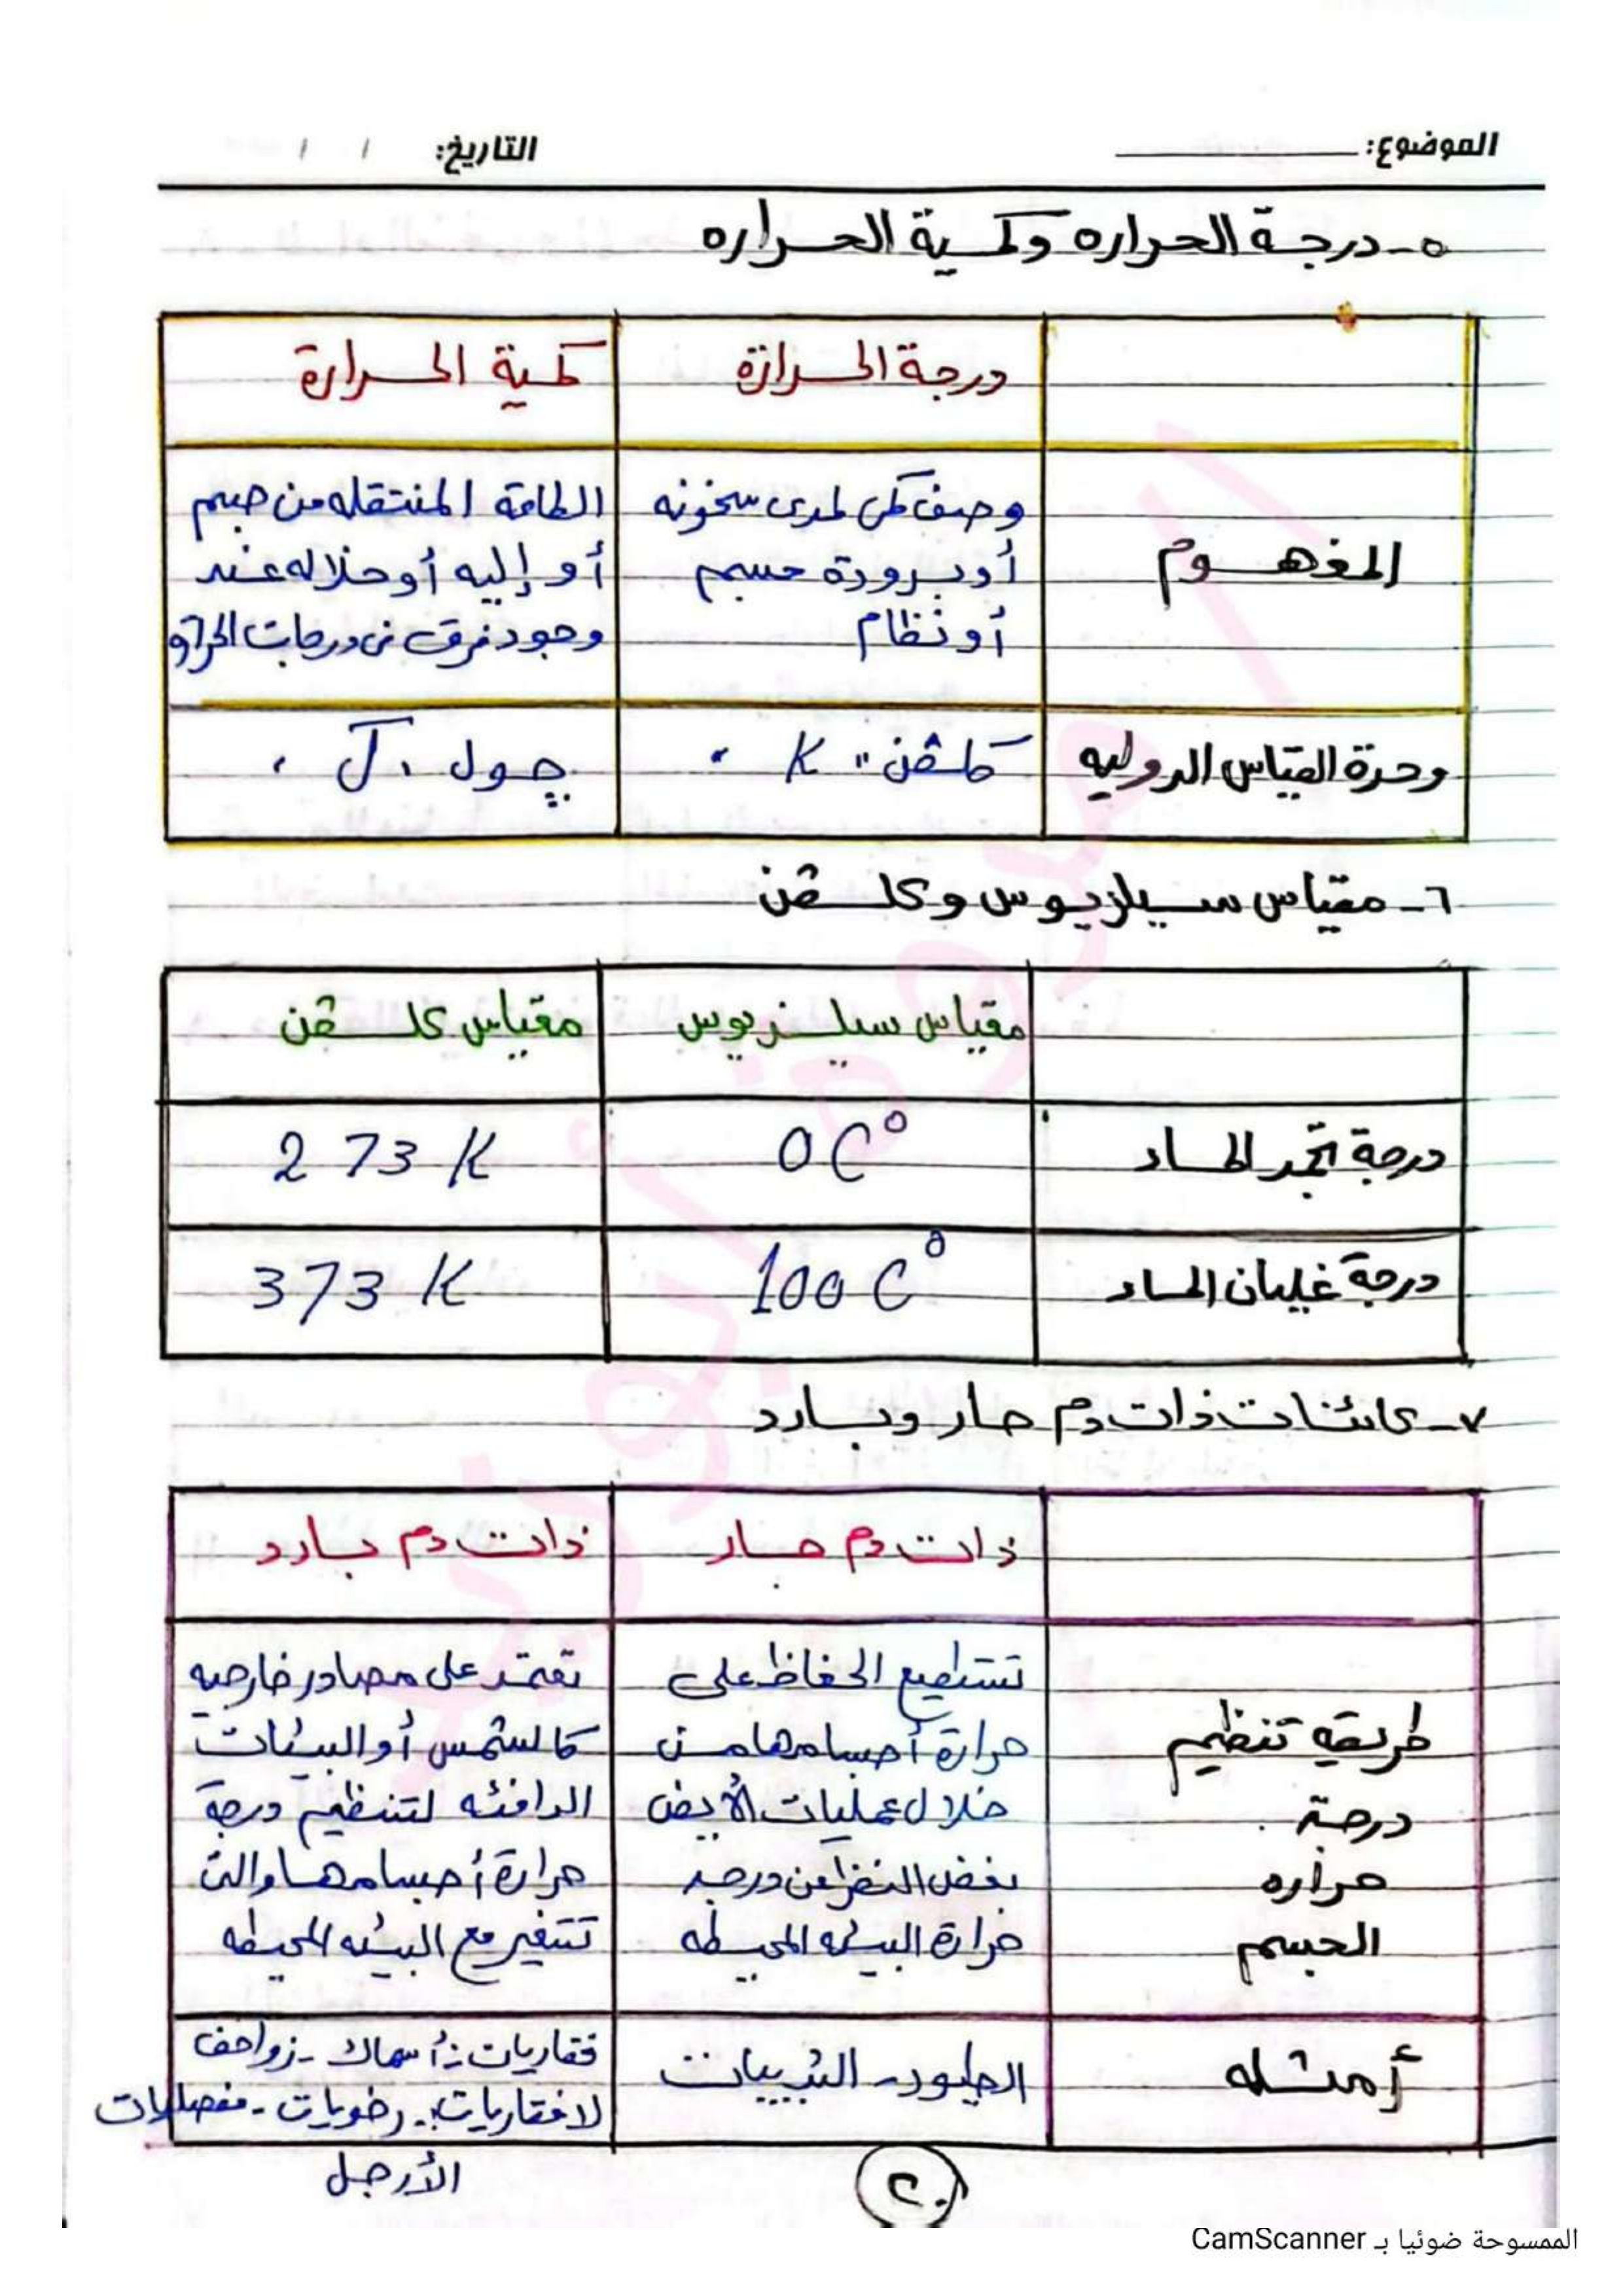 الموضوع: التاريخ: / /
٥- درجة الحراره وكمية الحراره
درجة الحرارة كمية الحرارة
المفهوم
وصف كمى لمدى سخونه
أو برودة جسم
أو نظام
الطاقة المنتقله من جسم
أو إليه أو خلاله عند
وجود فرق فى درجات الحرارة
وحدة القياس الدوليه كلڤن " K " چول " J "
٦- مقياس سيلزيوس وكلڤن
مقياس سيلزيوس مقياس كلڤن
درجة تجمد الماء 0 C° 273 K
درجة غليان الماء 100 C° 373 K
٧- كائنات ذات دم حار وبارد
ذات دم حار ذات دم بارد
طريقه تنظيم
درجة
حراره
الجسم
تستطيع الحفاظ على
حرارة أجسامها من
خلال عمليات الأيض
بغض النظر عن درجة
حرارة البيئه المحيطه
تعتمد على مصادر خارجيه
كالشمس أو البيئات
الدافئه لتنظيم درجة
حرارة أجسامها والتى
تتغير مع البيئه المحيطه
أمثله
الطيور - الثدييات
فقاريات :- أسماك - زواحف
لافقاريات :- رخويات - مفصليات
الأرجل
٢٠
الممسوحة ضوئيا بـ CamScanner